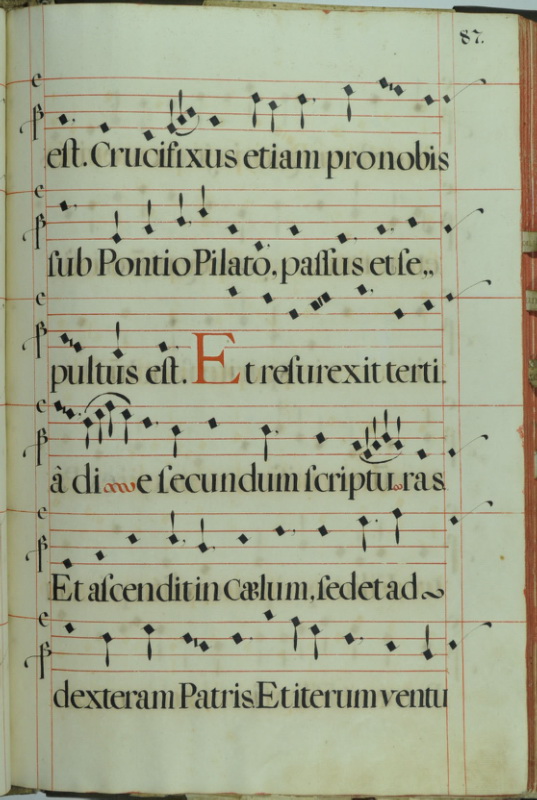 87.
eſt. Crucifixus etiam pro nobis
ſub Pontio Pilato, paſſus et ſe,,
pultus eſt. Et reſurexit terti.
â die ſecundum ſcripturas
Et aſcendit in cælum, ſedet ad~
dexteram Patris. Et iterum ventu